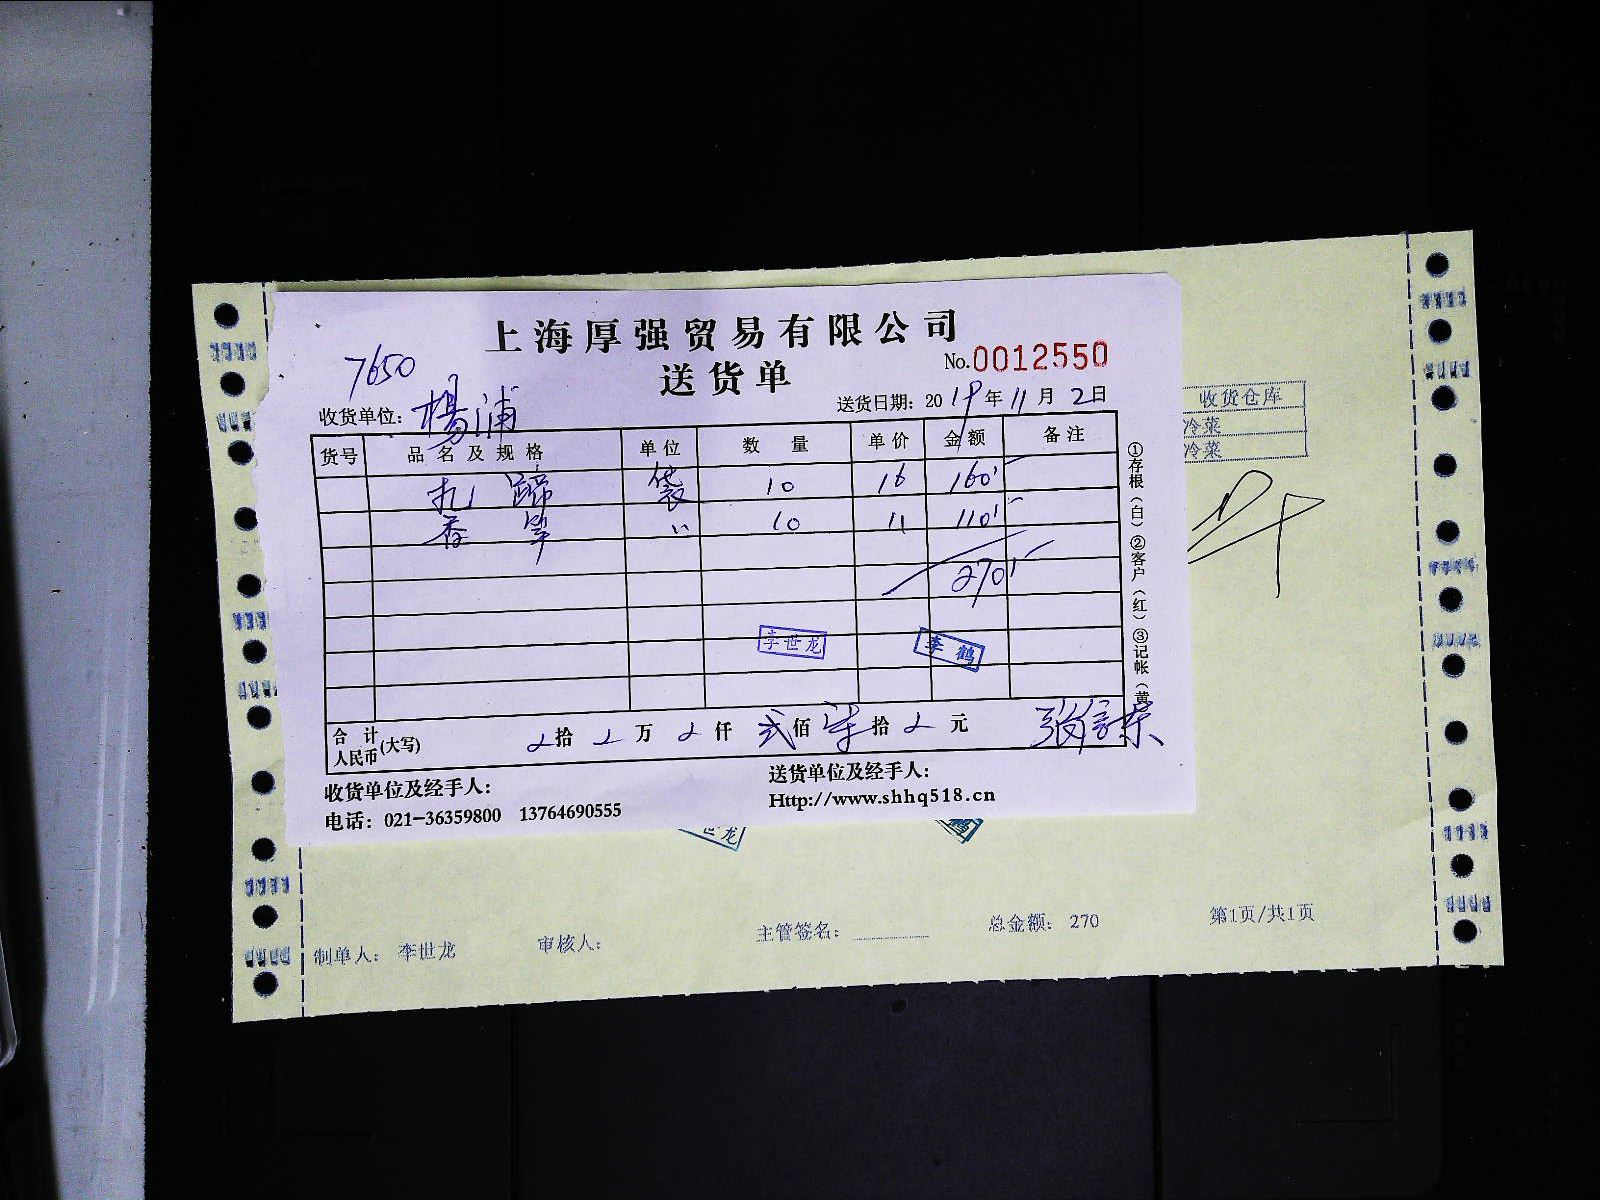 上海厚强贸易有限公司
送货单
No.0012550
7650
收货单位: 楊浦
送货日期: 2019年11月2日
货号 品名及规格 单位 数量 单价 金额 备注
扎蹄 袋 10 16 160
香笋 〃 10 11 110
270
李世龙 李鹤
合计人民币(大写) 拾 万 仟 弍佰柒拾 元
收货单位及经手人:
送货单位及经手人:
电话: 021-36359800 13764690555
Http://www.shhq518.cn
①存根(白)②客户(红)③记帐(黄
收货仓库
冷菜
冷菜
世龙 鹤
制单人: 李世龙 审核人: 主管签名: 总金额: 270 第1页/共1页